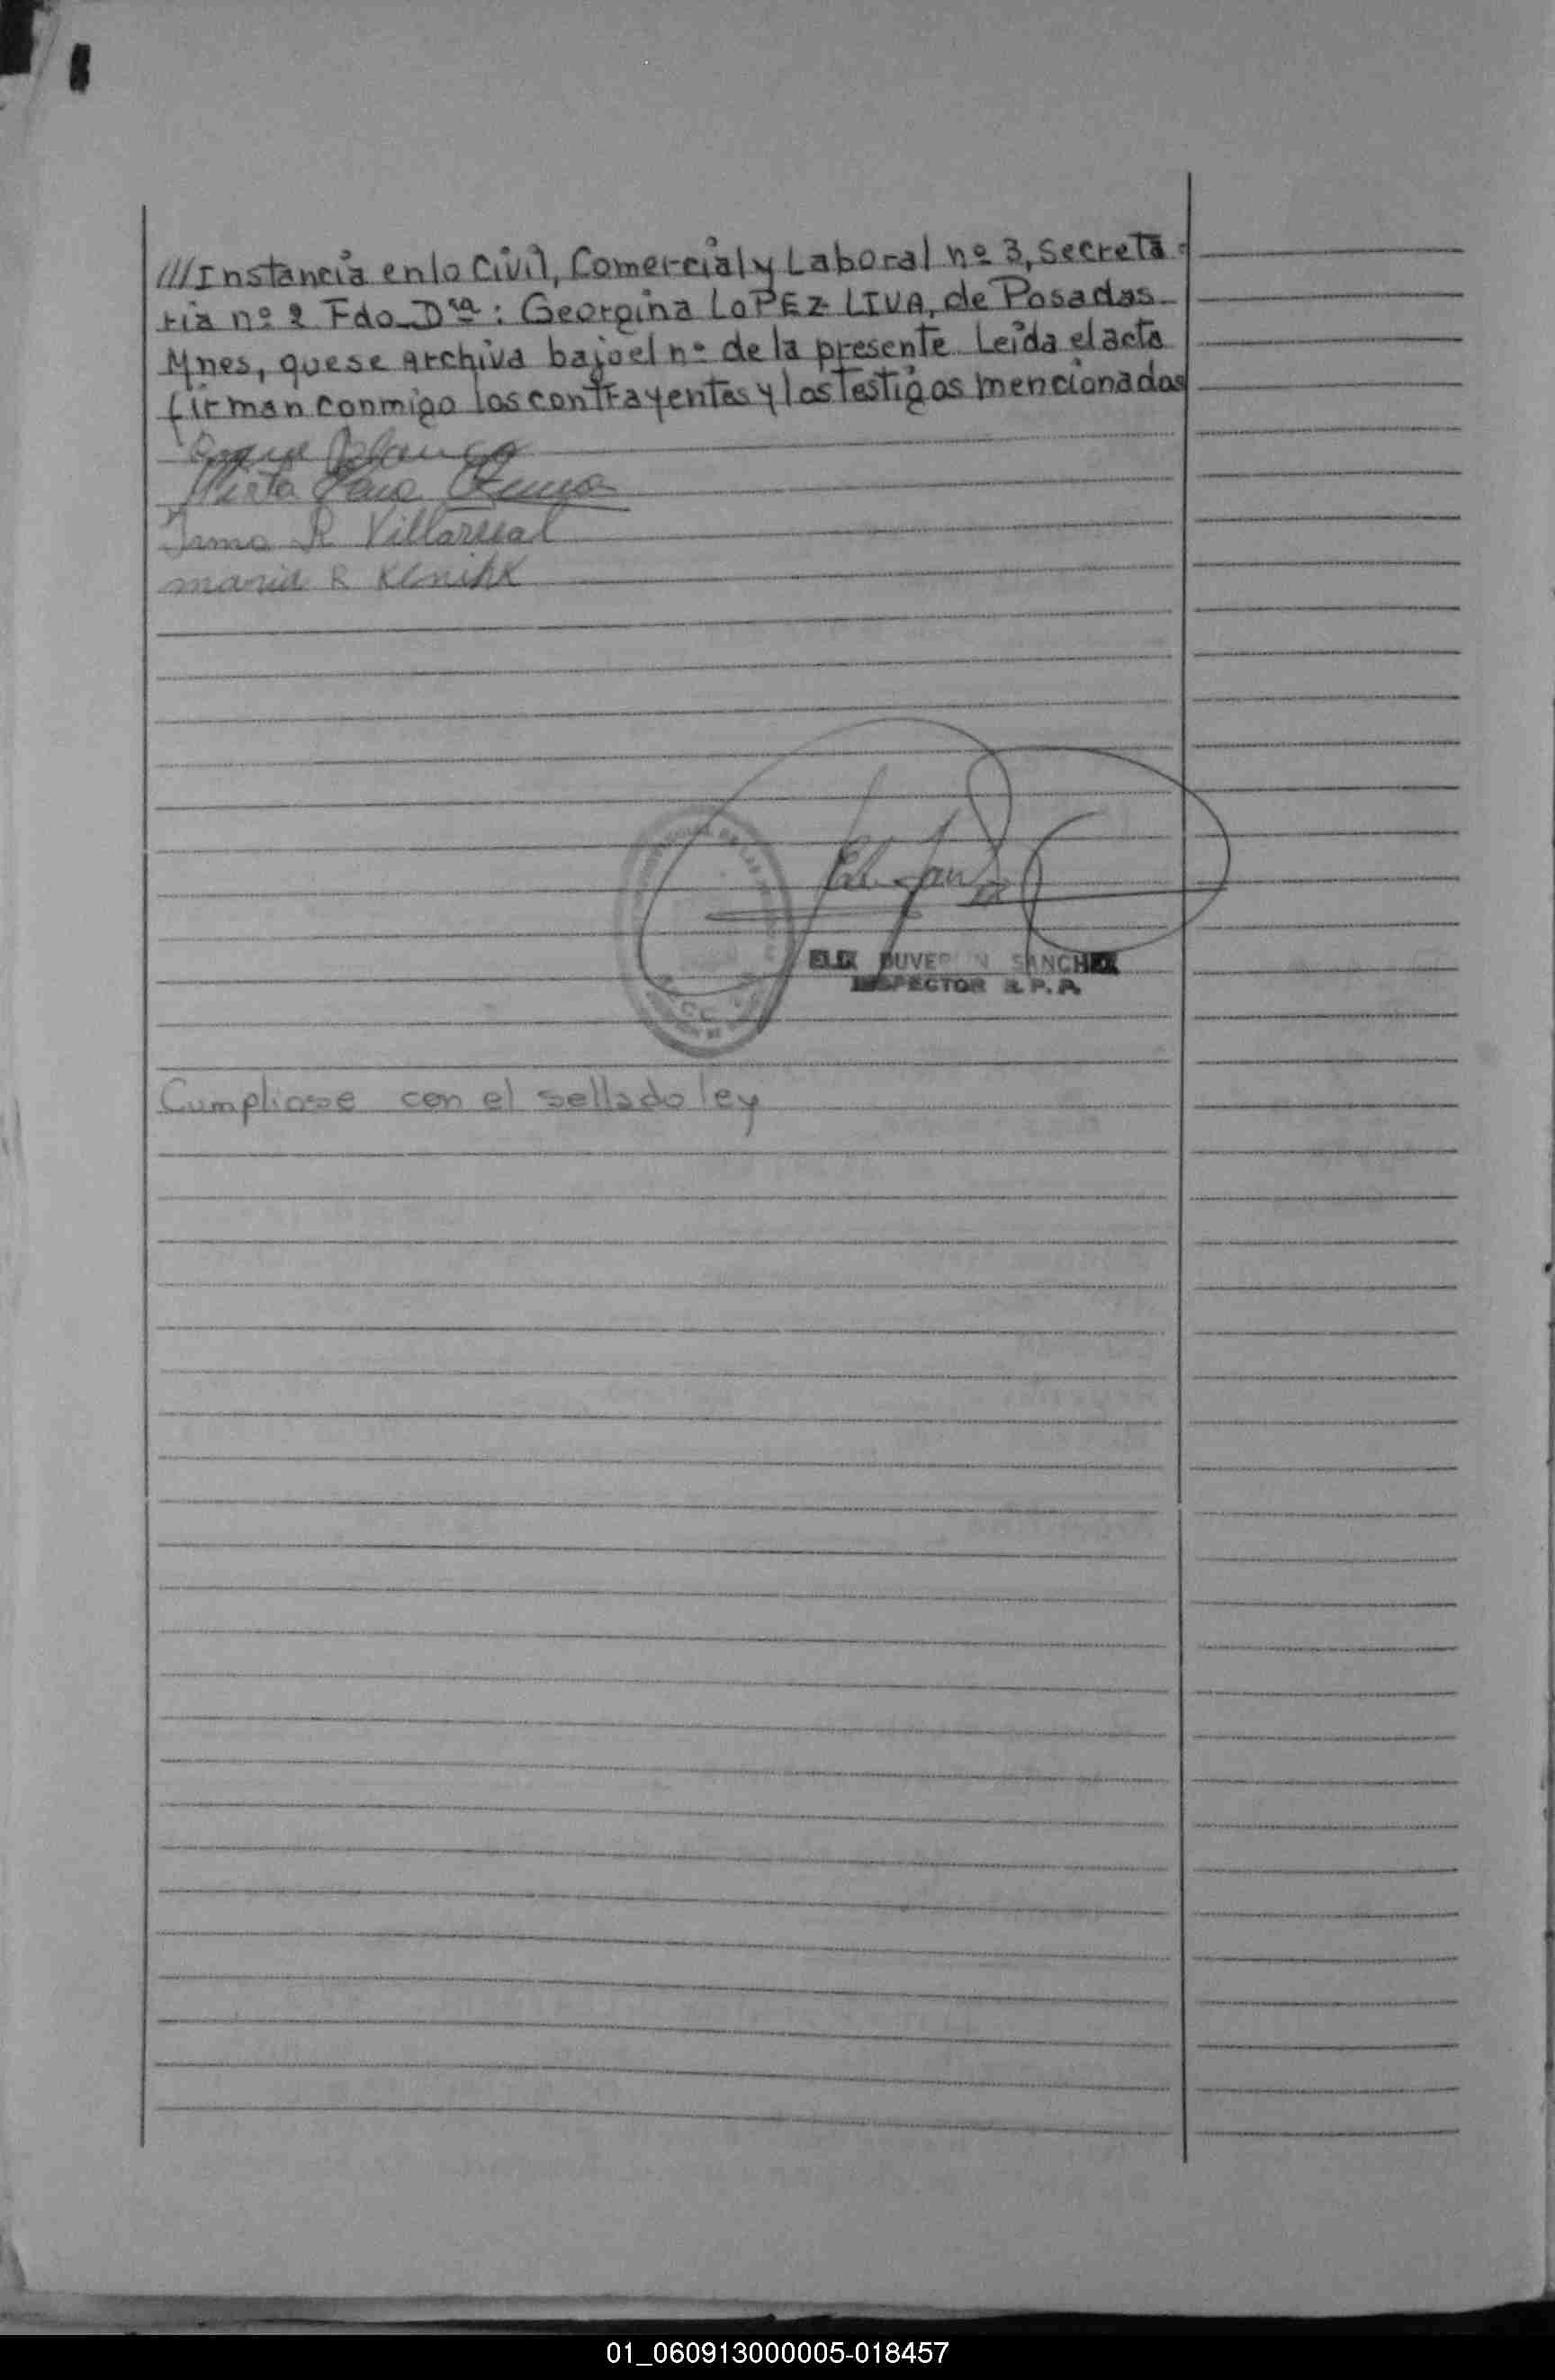 ///Instancia en lo Civil, Comercial y Laboral nº 3, Secreta-
ria nº 2 Fdo. Dra: Georgina LOPEZ LIVA, de Posadas
Mnes, que se Archiva bajo el nº de la presente. Leida el acta
firman conmigo los contrayentes y los Testigos mencionados
Mirta
Irma R Villarreal
maria R Klenihk
SANCHEZ
INSPECTOR R.P.P.
Cumpliose con el sellado ley
01_060913000005-018457